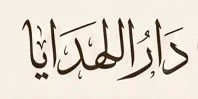 دَارُ الهَدَايَا